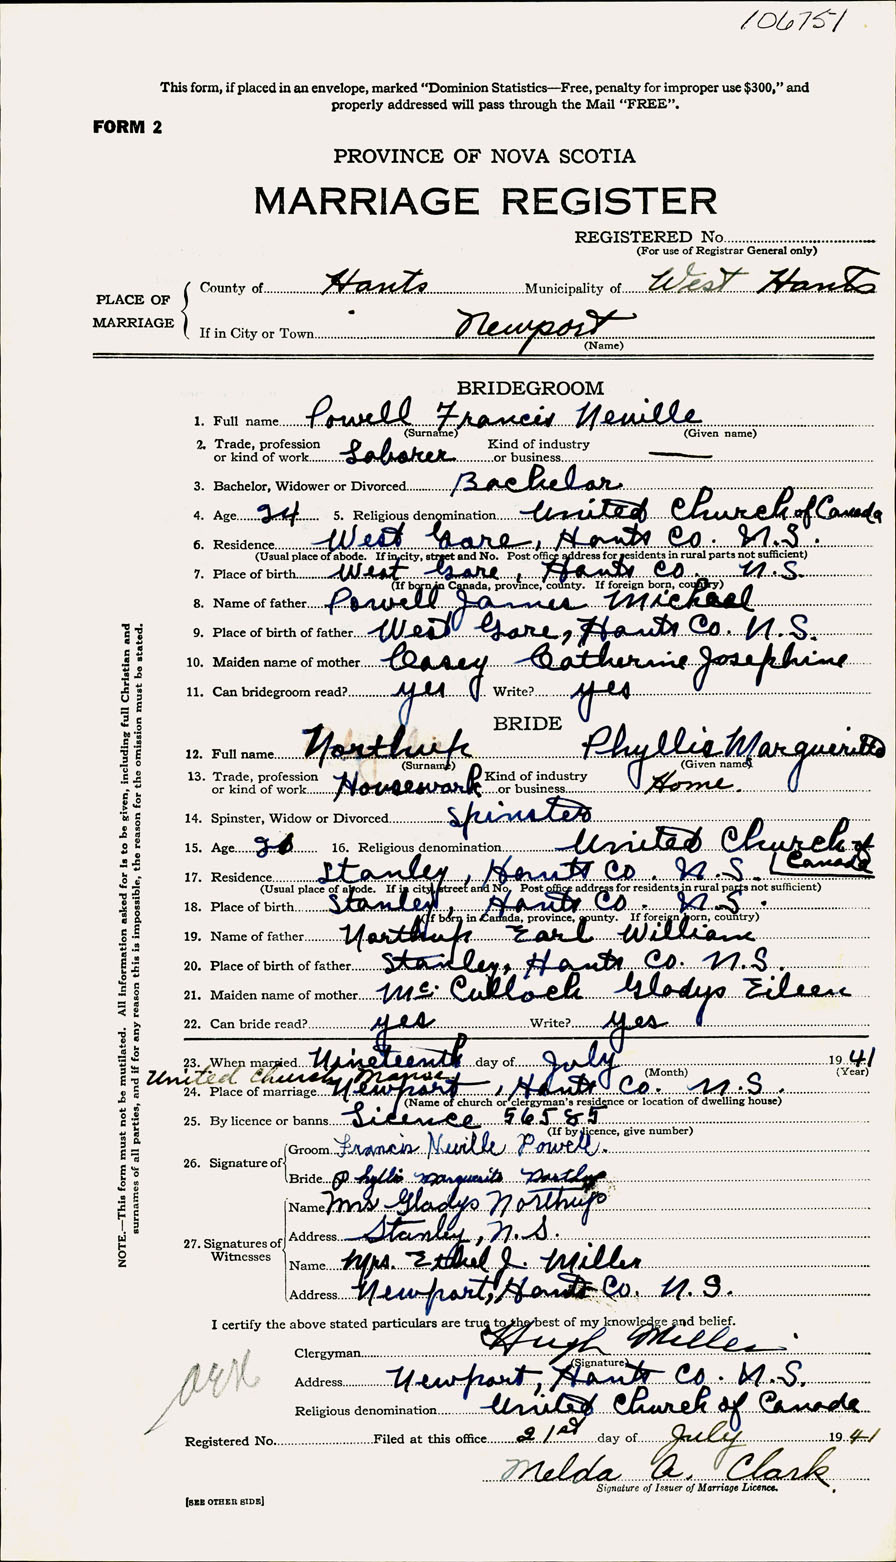 106751
This form, if placed in an envelope, marked “Dominion Statistics—Free, penalty for improper use $300,” and
properly addressed will pass through the Mail “FREE”.
FORM 2
PROVINCE OF NOVA SCOTIA
MARRIAGE REGISTER
REGISTERED No.
(For use of Registrar General only)
PLACE OF MARRIAGE
County of Hants Municipality of West Hants
If in City or Town Newport
(Name)
BRIDEGROOM
1. Full name Powell Francis Neville
(Surname) (Given name)
2. Trade, profession or kind of work Laborer Kind of industry or business —
3. Bachelor, Widower or Divorced Bachelor
4. Age 24 5. Religious denomination United Church of Canada
6. Residence West Gore, Hants Co. N.S.
(Usual place of abode. If in city, street and No. Post office address for residents in rural parts not sufficient)
7. Place of birth West Gore, Hants Co. N.S.
(If born in Canada, province, county. If foreign born, country)
8. Name of father Powell James Michael
9. Place of birth of father West Gore, Hants Co. N.S.
10. Maiden name of mother Casey Catherine Josephine
11. Can bridegroom read? yes Write? yes
BRIDE
12. Full name Northup Phyllis Marguerite
(Surname) (Given name)
13. Trade, profession or kind of work Housework Kind of industry or business Home.
14. Spinster, Widow or Divorced Spinster
15. Age 16. Religious denomination United Church of
Canada
17. Residence Stanley, Hants Co. N.S.
(Usual place of abode. If in city, street and No. Post office address for residents in rural parts not sufficient)
18. Place of birth Stanley, Hants Co. N.S.
(If born in Canada, province, county. If foreign born, country)
19. Name of father Northup Earl William
20. Place of birth of father Stanley, Hants Co. N.S.
21. Maiden name of mother McCulloch Gladys Eileen
22. Can bride read? yes Write? yes
23. When married Nineteenth day of July 1941
(Month) (Year)
United Church Manse
24. Place of marriage Newport, Hants Co. N.S.
(Name of church or clergyman's residence or location of dwelling house)
25. By licence or banns Licence 56585
(If by licence, give number)
26. Signature of
Groom Francis Neville Powell.
Bride Phyllis Marguerite Northup
27. Signatures of Witnesses
Name Mrs Gladys Northup
Address Stanley, N.S.
Name Mrs. Ethel J. Miller
Address Newport, Hants Co. N.S.
I certify the above stated particulars are true to the best of my knowledge and belief.
Clergyman Hugh Miller
(Signature)
Address Newport, Hants Co. N.S.
Religious denomination United Church of Canada
Registered No. Filed at this office 21st day of July 1941
Melda A. Clark.
Signature of Issuer of Marriage Licence.
[SEE OTHER SIDE]
NOTE.—This form must not be mutilated. All information asked for is to be given, including full Christian and
surnames of all parties, and if for any reason this is impossible, the reason for the omission must be stated.